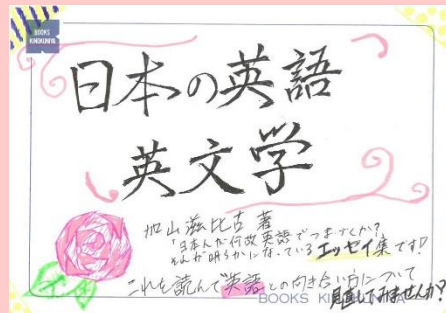 BOOKS
KINOKUNIYA
日本の英語
英文学
外山滋比古 著
「日本人が何故英語でつまずくか?
それが明らかになっているエッセイ集です!
これを読んで英語との向き合い方について
見直してみませんか?
BOOKS KINOKUNIYA